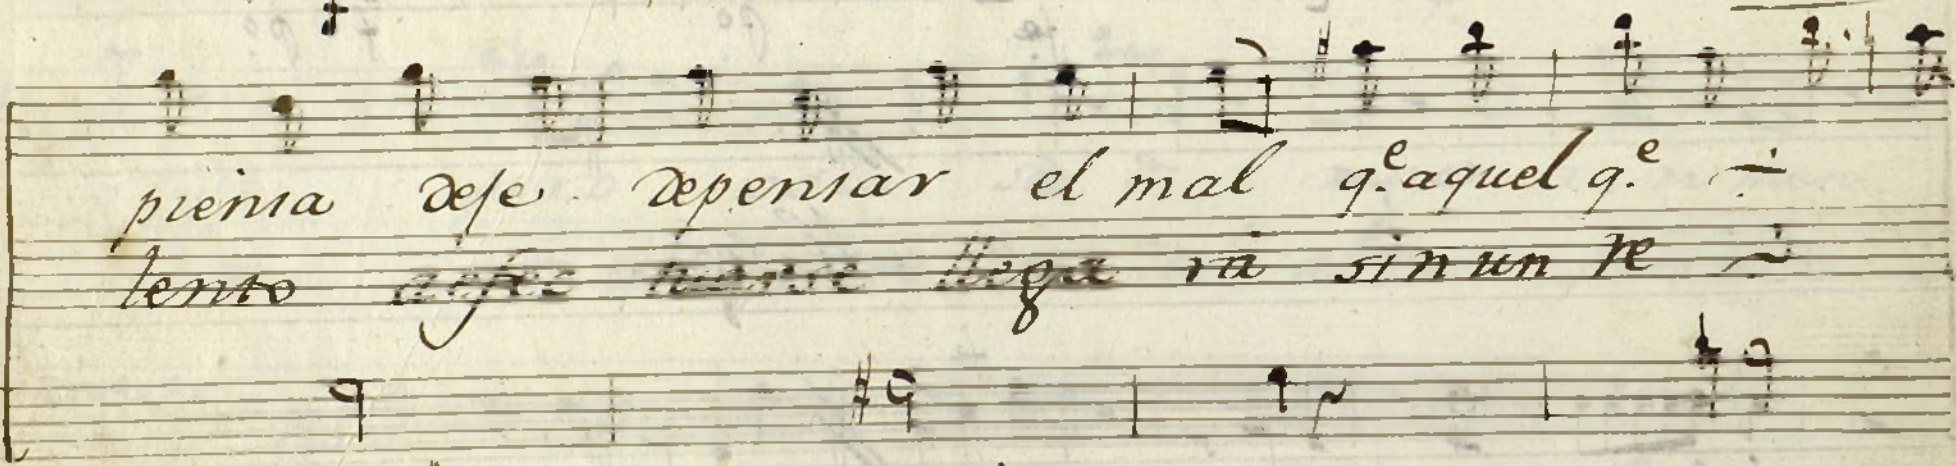 piensa dese depensar el mal q.e aquel q.e
lento llega rá sin un re